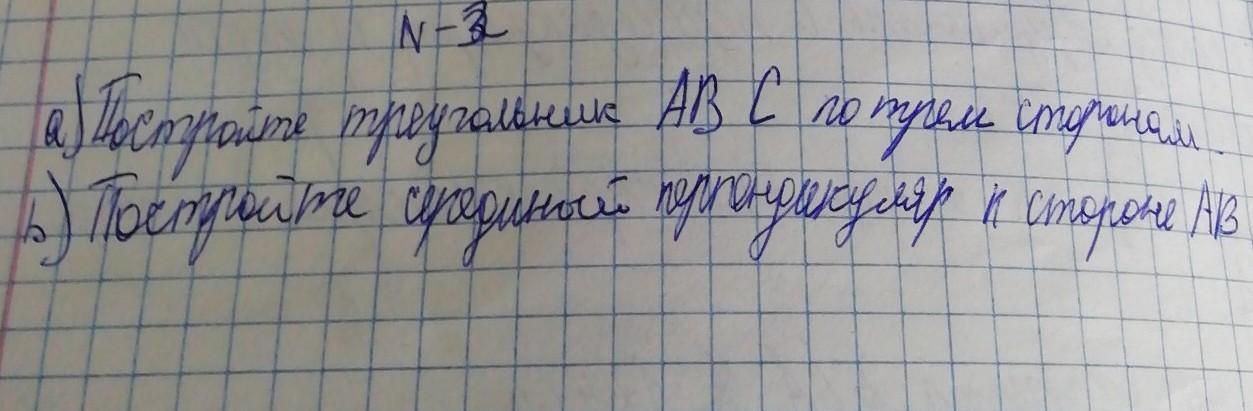 N-3
а) Постройте треугольник АВС по трем сторонам.
b) Постройте серединый перпендикуляр к стороне АВ